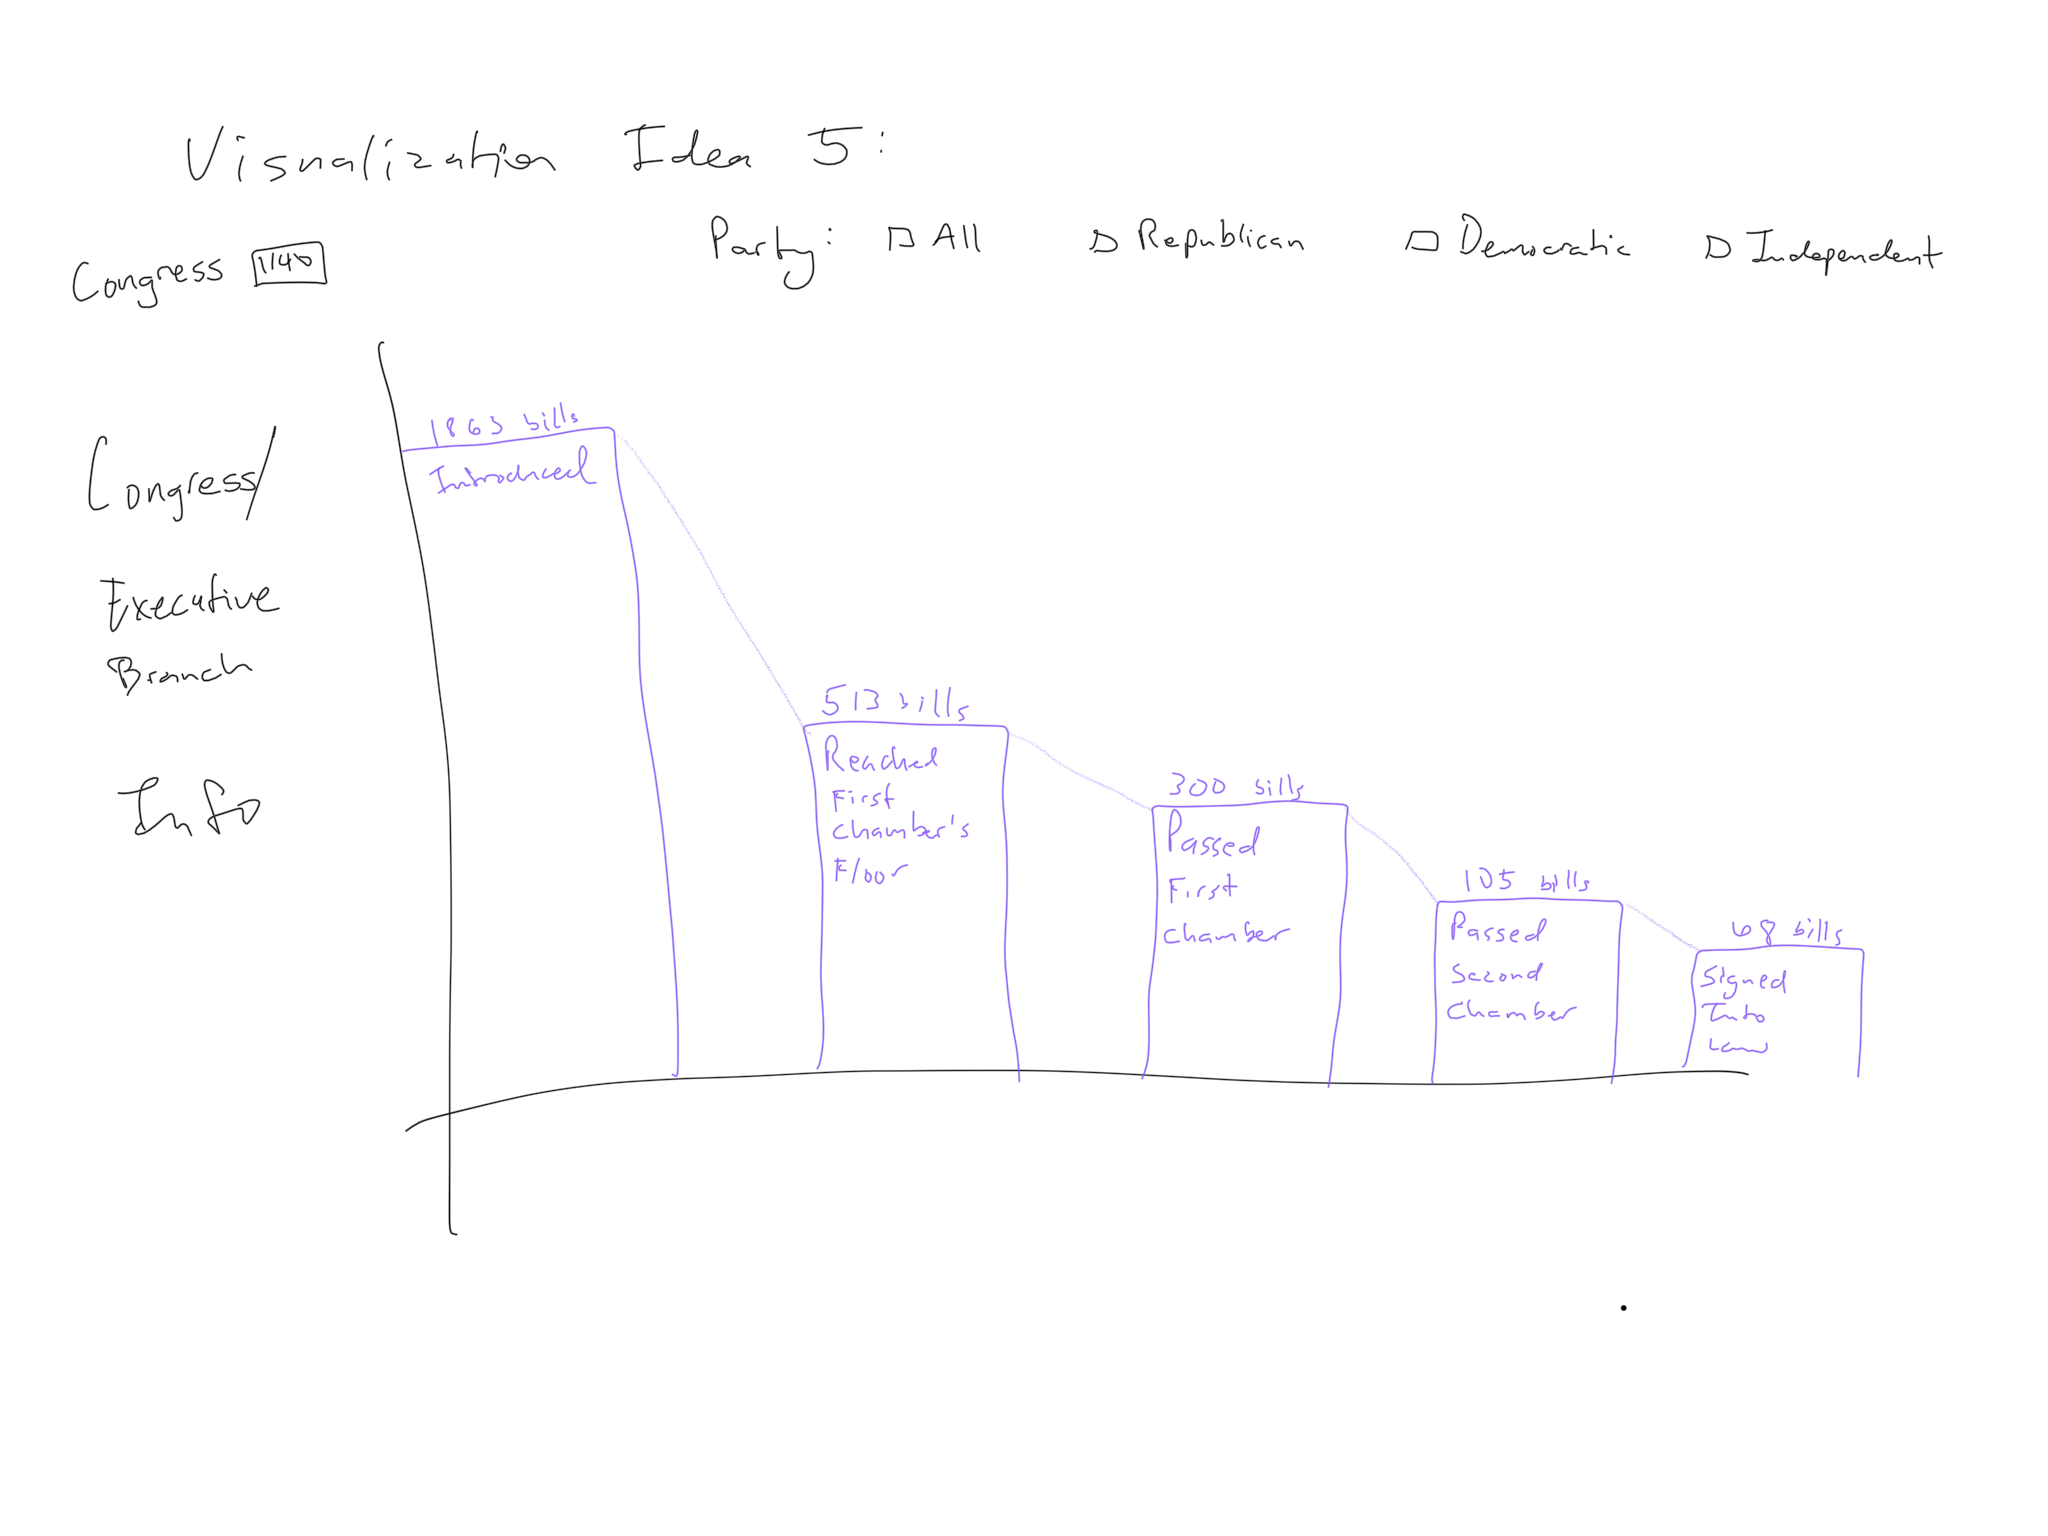 Visualization Idea 5:
Congress Party: All Republican Democratic Independent
1863 bills
Introduced
Congress/
Executive
Branch
Info
513 bills
Reached
First
Chamber's
Floor
300 bills
Passed
First
Chamber
105 bills
Passed
Second
Chamber
68 bills
Signed
Into
Law